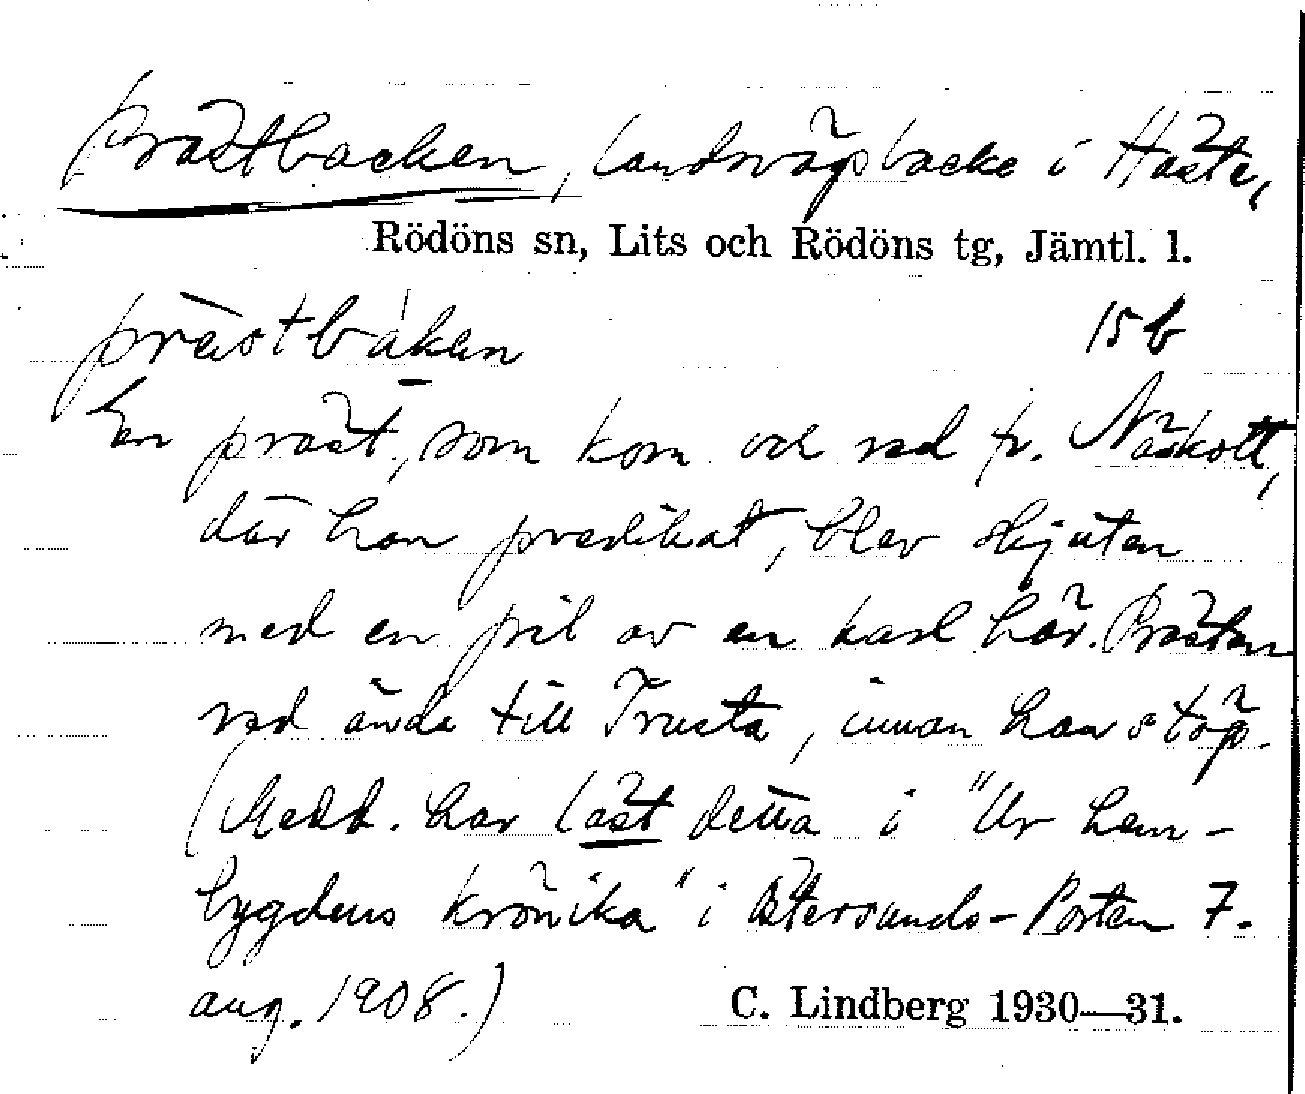 Prästbacken, landsvägsbacke i Häste,
Rödöns sn, Lits och Rödöns tg, Jämtl. l.
prästbákan
15 b
En präst, som kom och red fr. Näskott,
där han predikat, blev skjuten
med en pil av en karl här. Prästen
red ända till Trusta, innan han stöp.
(Medd. har läst detta i "Ur hem-
bygdens krönika" i Östersunds-Posten 7.
aug. 1908.)
C. Lindberg 1930—31.